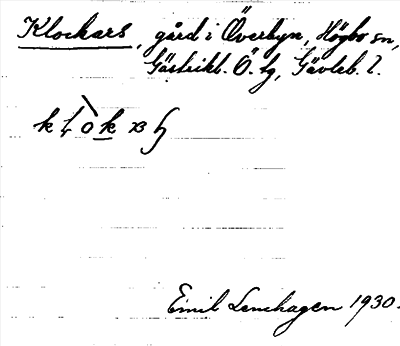 Klockars, gård i Överbyn, Högbo sn,
Gästrikl. Ö. tg, Gävleb. l.
Emil Lenhagen 1930.